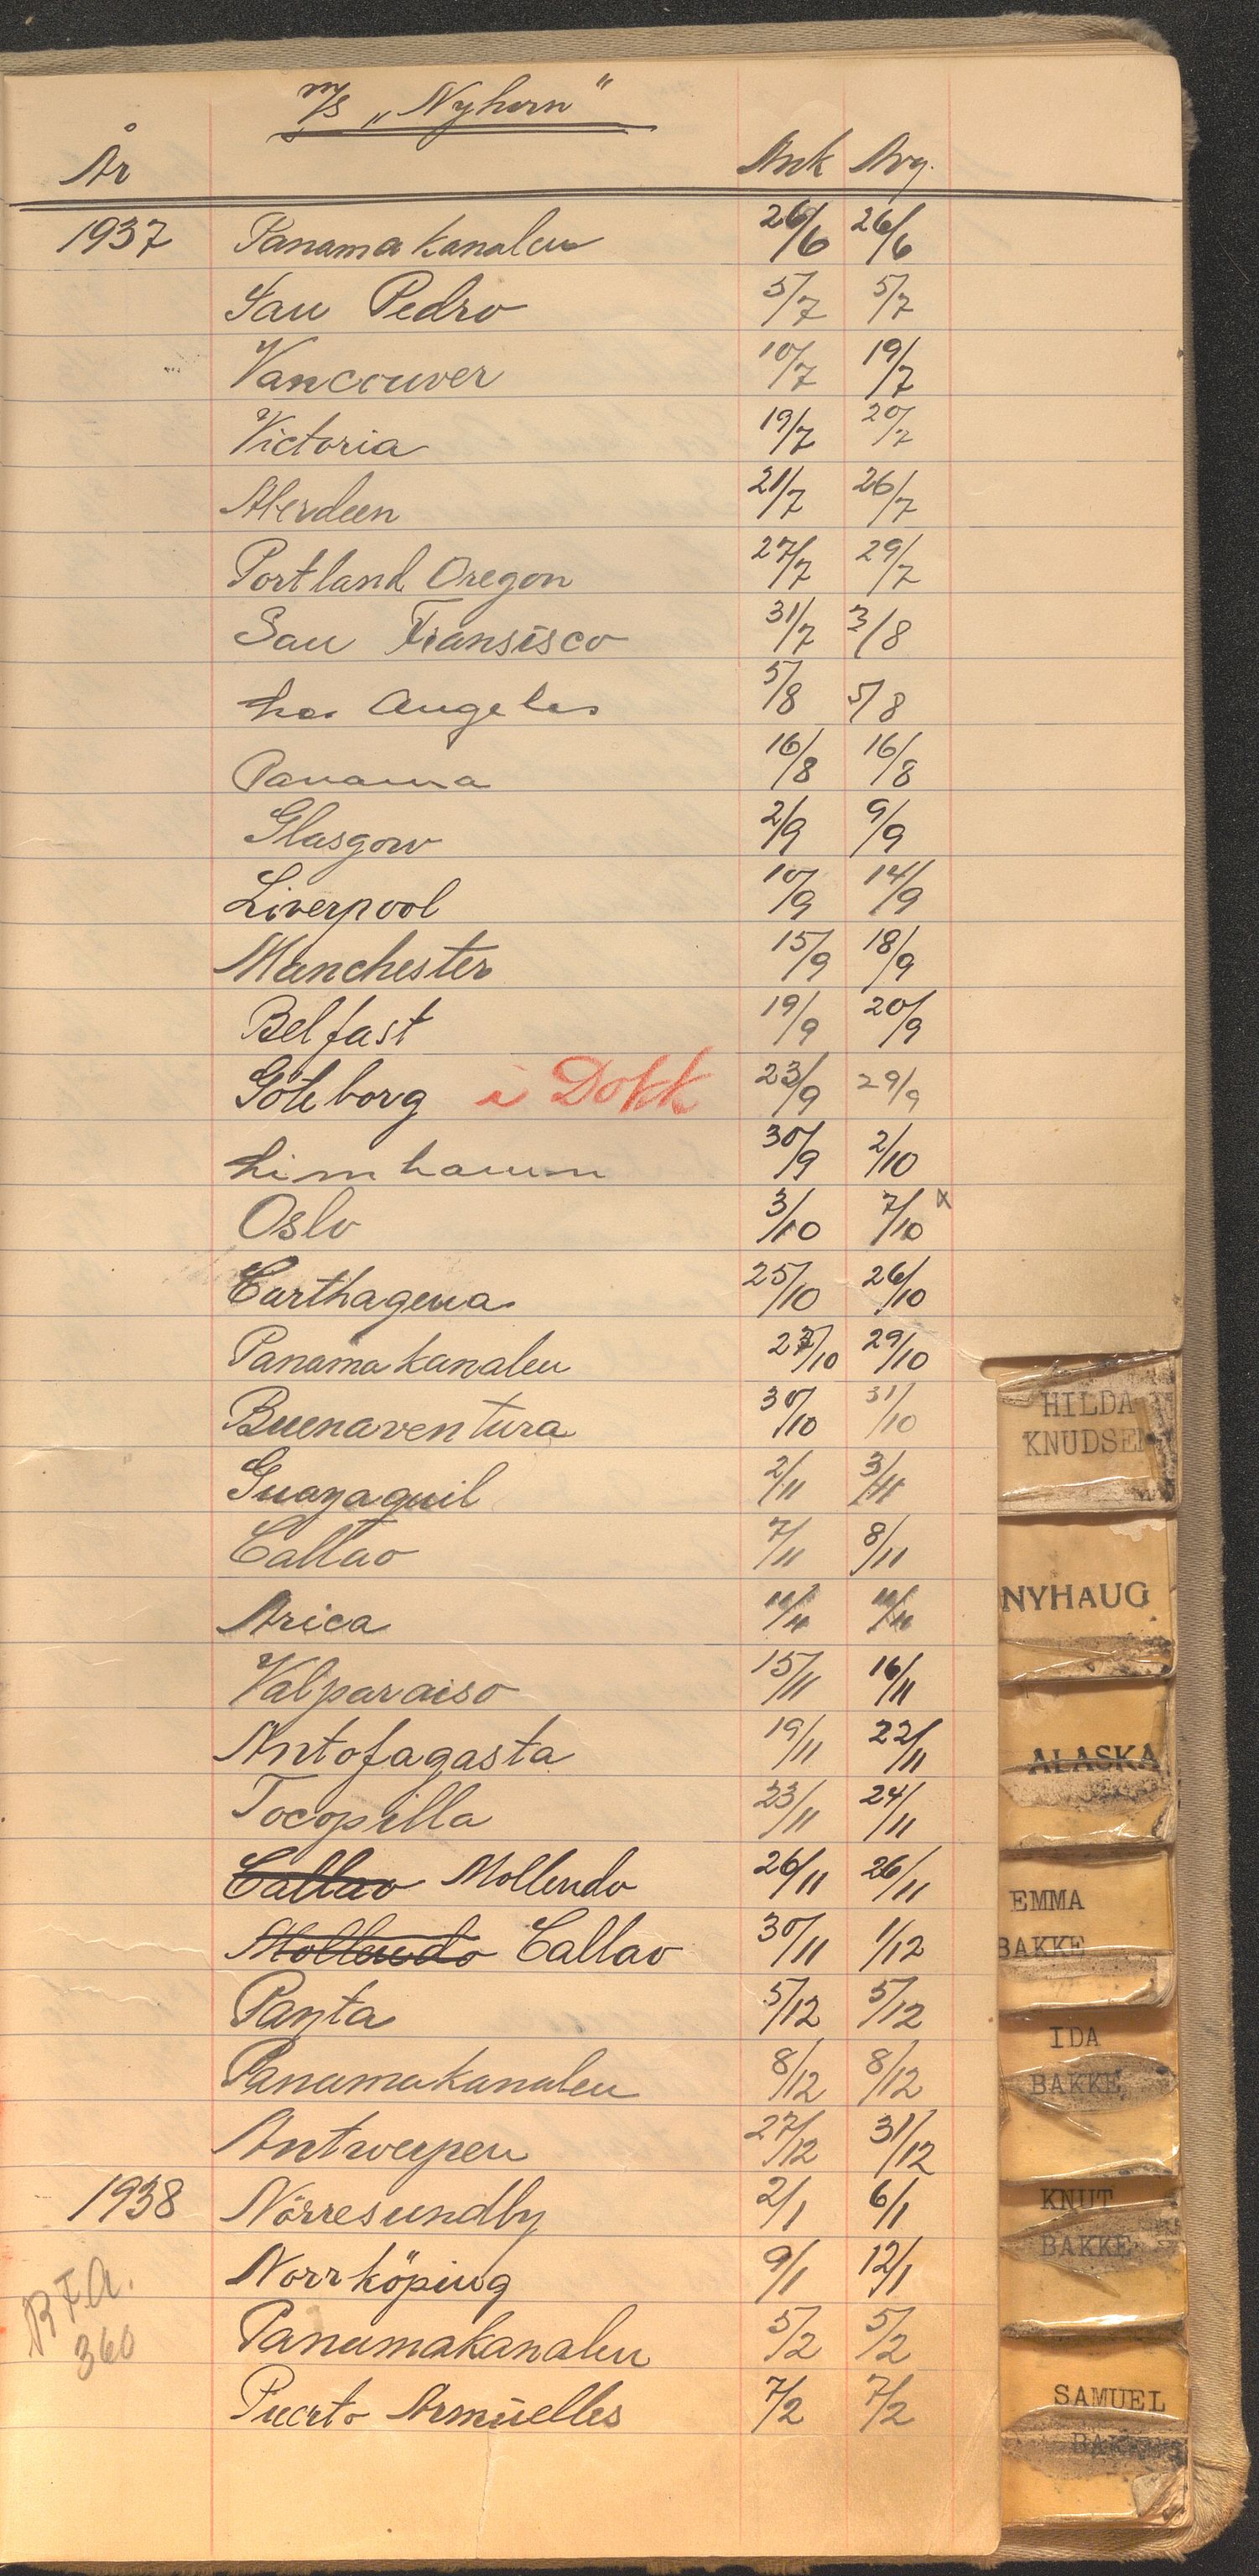 m/s „Nyhorn"
År Ank Avg.
1937 Panamakanalen 26/6 26/6
San Pedro 5/7 5/7
Vancouver 10/7 19/7
Victoria 19/7 20/7
Aberdeen 21/7 26/7
Portland Oregon 27/7 29/7
San Fransisco 31/7 3/8
Los Angeles 5/8 5/8
Panama 16/8 16/8
Glasgow 2/9 9/9
Liverpool 10/9 14/9
Manchester 15/9 18/9
Belfast 19/9 20/9
Göteborg i Dokk 23/9 29/9
Limhamn 30/9 2/10
Oslo 3/10 7/10 x
Carthagena 25/10 26/10
Panamakanalen 27/10 29/10
Buenaventura 30/10 31/10
Guayaquil 2/11 3/11
Callao 7/11 8/11
Arica 11/11 11/11
Valparaiso 15/11 16/11
Antofagasta 19/11 22/11
Tocopilla 23/11 24/11
Callao Mollendo 26/11 26/11
Mollendo Callao 30/11 1/12
Panta 5/12 5/12
Panamakanalen 8/12 8/12
Antwerpen 27/12 31/12
1938 Nörresundby 2/1 6/1
Norrköping 9/1 12/1
Panamakanalen 5/2 5/2
Puerto Armuelles 7/2 7/2
360
HILDA
KNUDSEN
NYHAUG
ALASKA
EMMA
BAKKE
IDA
BAKKE
KNUT
BAKKE
SAMUEL
BAKKE